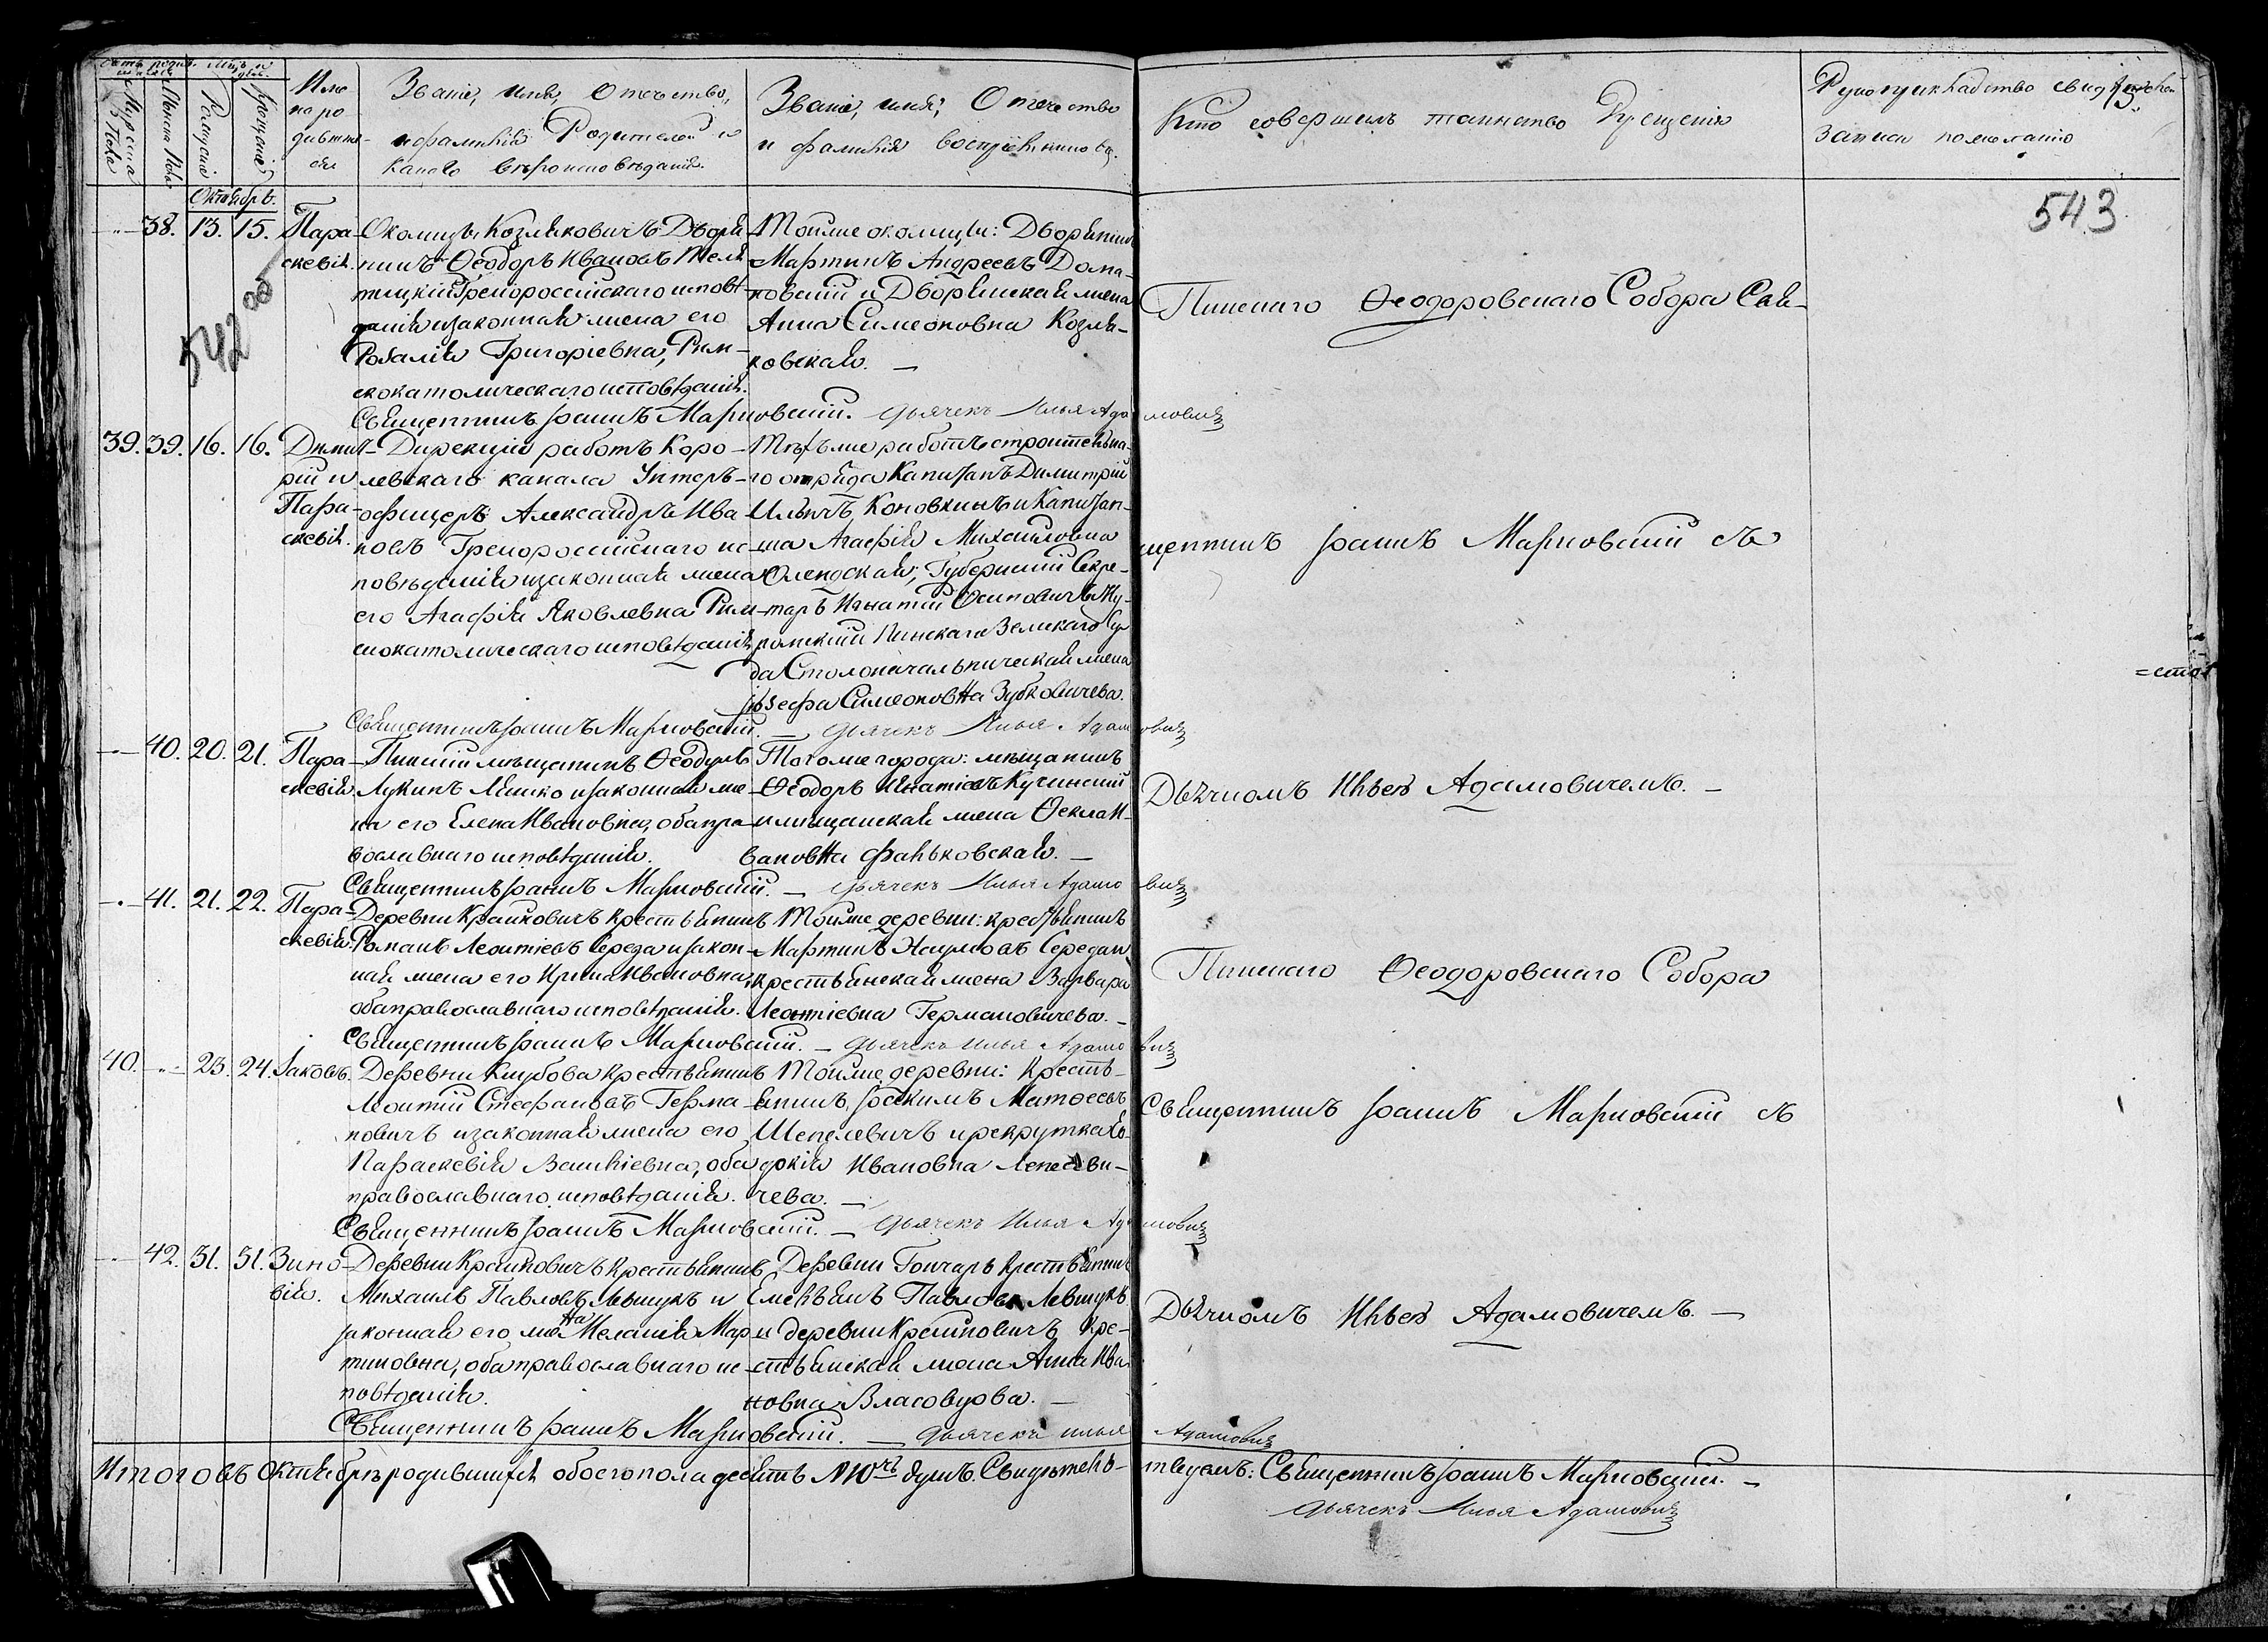 Счетъ родив-
шихся
Мцъ и
день
Мужеска
Пола
Женска Пола
Рожденіе
Крещеніе
Имя
народившихся
Званіе, имя, Отечество,
и фамилія Родителей и
какого вѣроисповѣданія.
Званіе, имя, Отечество
и фамилія воспріемниковъ.
Кто совершилъ таинство Крещенія
Рукоприкладство свидѣтелей
записи по желанію
543
Октябрь.
38. 13. 15. Пара-
скевія.
Околицы Козляковичъ Дворя-
нинъ Ѳеодоръ Ивановъ Теля-
тицкій Грекороссійскаго исповѣ-
данія и законная жена его
Розалія Григоріевна, Рим-
скокатолическаго исповѣданія.
Тойже околицы: Дворянинъ
Мартинъ Андреевъ Дома-
новскій и Дворянская жена
Анна Симеоновна Козля-
ковская. —
542 об
Священникъ Іоаннъ Марковскій. Дьячекъ Илья Адамовичъ
39. 39. 16. 16. Димит-
рій и
Пара-
скевія.
Дирекціи работъ Коро-
левскаго канала Унтеръ-
офицеръ Александръ Ива-
новъ Грекороссійскаго ис-
повѣданія и законная жена
его Агафія Яковлевна Рим-
скокатолическаго исповѣданія
Тѣхъже работъ строительна-
го отряда Капитанъ Димитрій
Ильичъ Коновкинъ и Капитан-
ша Агафія Михайловна
Олендская; Губернскій Секре-
тарь Игнатій Осиповичъ
Пинскаго Земскаго Су-
да Столоначальническая жена
Іозефа Симеоновна Зубковичева.
Священникъ Іоаннъ Марковскій. — Дьячекъ Илья Адамовичъ
40. 20. 21. Пара-
скевія.
Пинскій мѣщанинъ Ѳеодулъ
Лукинъ Ляшко и законная же-
на его Елена Ивановна, оба пра-
вославнаго исповѣданія.
Тогоже города: мѣщанинъ
Ѳеодоръ Игнатіевъ Кучинскій
и мѣщанская жена Ѳекла И-
вановна Фаньковская. —
Священникъ Іоаннъ Марковскій. — Дьячекъ Илья Адамовичъ
41. 21. 22. Пара-
скевія.
Деревни Крайновичъ крестьянинъ
Романъ Леонтіевъ Середа и закон-
ная жена его Ирина Ивановна,
оба православнаго исповѣданія.
Тойже деревни: крестьянинъ
Мартинъ Наумовъ Середа и
крестьянская жена Варвара
Леонтіевна Германовичева. —
Священникъ Іоаннъ Марковскій. — Дьячекъ Илья Адамовичъ
40. 23. 24. Іаковъ.
Деревни крестьянинъ
Леонтій Стефановъ Герма-
новичъ и законная жена его
Параскевія Васильевна, оба
православнаго исповѣданія.
Тойже деревни: Кресть-
янинъ Іоакимъ Матѳеевъ
Шепелевичъ и рекрутка Ев-
докія Ивановна
чева. —
Священникъ Іоаннъ Марковскій. — Дьячекъ Илья Адамовичъ
42. 31. 31. Зино-
вія.
Деревни Крайновичъ крестьянинъ
Михаилъ Павловъ Левчукъ и
законная его жена Меланія Мар-
тиновна, оба православнаго ис-
повѣданія.
Деревни Гончаръ крестьянинъ
Емельянъ Павловъ Левчукъ
и деревни Крайновичъ кре-
стьянская жена Анна Ива-
новна Власовцова. —
Священникъ Іоаннъ Марковскій. — Дьячекъ Илья Адамовичъ
Пинскаго Ѳеодоровскаго Собора Свя-
щенникъ Іоаннъ Марковскій съ
Дьячкомъ Ильею Адамовичемъ. —
Пинскаго Ѳеодоровскаго Собора
Священникъ Іоаннъ Марковскій съ
Дьячкомъ Ильею Адамовичемъ. —
Итого въ Октябрѣ родившихся обоего пола десять №10ть душъ. Свидѣтель-
ствуемъ: Священникъ Іоаннъ Марковскій. —
Дьячекъ Илья Адамовичъ